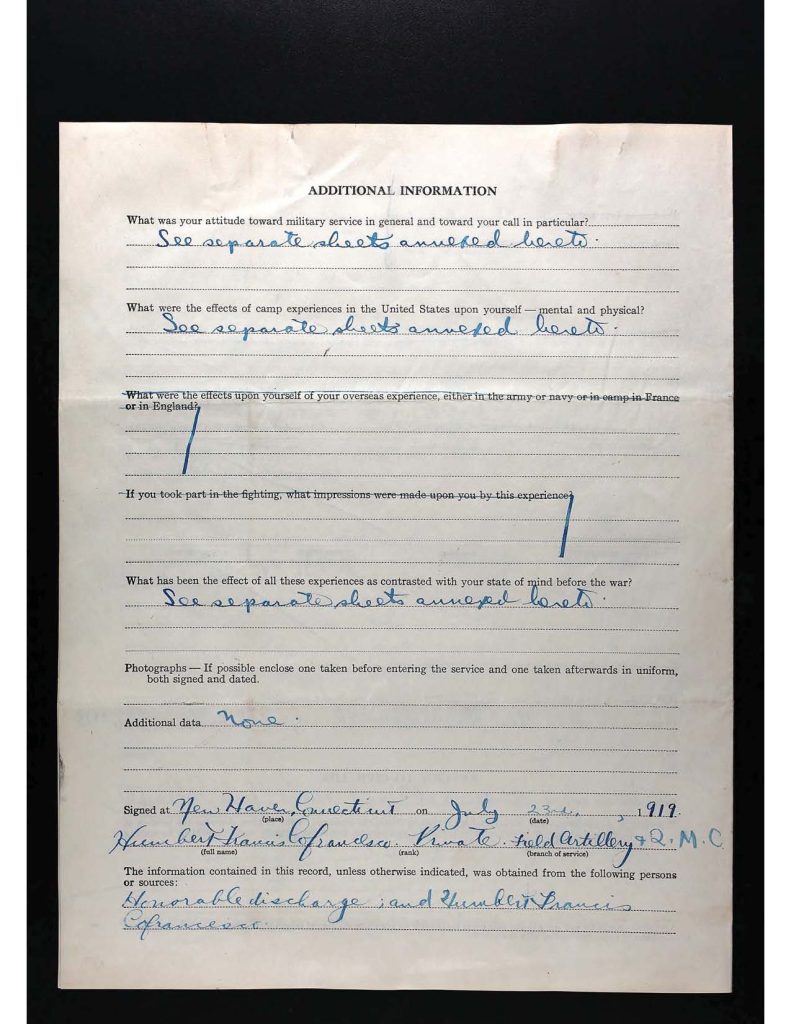 ADDITIONAL INFORMATION
What was your attitude toward military service in general and toward your call in particular?
See separate sheets annexed hereto.
What were the effects of camp experiences in the United States upon yourself — mental and physical?
See separate sheets annexed hereto.
What were the effects upon yourself of your overseas experience, either in the army or navy or in camp in France
or in England?
If you took part in the fighting, what impressions were made upon you by this experience?
What has been the effect of all these experiences as contrasted with your state of mind before the war?
See separate sheets annexed hereto.
Photographs — If possible enclose one taken before entering the service and one taken afterwards in uniform,
both signed and dated.
Additional data None.
Signed at New Haven, Connecticut on July 23rd, , 1919.
(place) (date)
Humbert Francis Cofrancesco. Private. Field Artillery & Q.M.C.
(full name) (rank) (branch of service)
The information contained in this record, unless otherwise indicated, was obtained from the following persons
or sources:
Honorable discharge; and Humbert Francis
Cofrancesco.